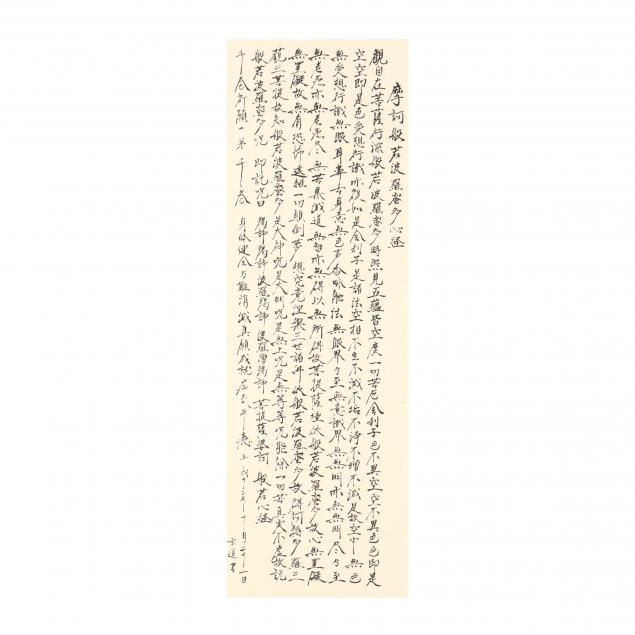 摩訶般若波羅蜜多心経
觀自在菩薩行深般若波羅蜜多時照見五蘊皆空度一切苦厄舍利子色不異空空不異色色即是
空空即是色受想行識亦復如是舍利子是諸法空相不生不滅不垢不浄不増不減是故空中無色
無受想行識無眼耳鼻舌身意無色声香味触法無眼界乃至無意識界無無明亦無無明尽乃至
無老死亦無老死尽無苦集滅道無智亦無得以無所得故菩提薩埵依般若波羅蜜多故心無罣礙
無罣礙故無有恐怖遠離一切顛倒夢想究竟涅槃三世諸佛依般若波羅蜜多故得阿耨多羅三
藐三菩提故知般若波羅蜜多是大神呪是大明呪是無上呪是無等等呪能除一切苦真実不虚故説
般若波羅蜜多呪 即説呪曰 羯諦羯諦 波羅羯諦 波羅僧羯諦 菩提薩婆訶 般若心経
千巻 第千巻 身体健全 消滅 願成就 十月二十一日